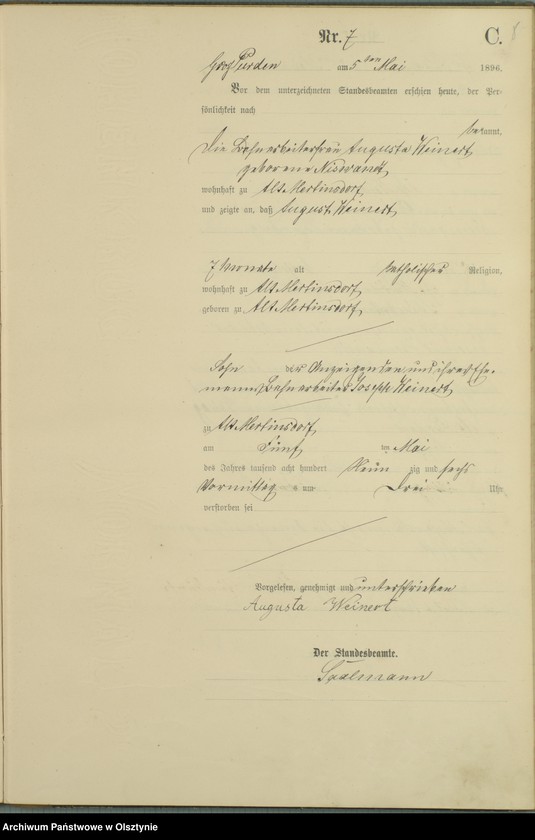 Nr. 7 C.
Groß Purden am 5ten Mai 1896.
Vor dem unterzeichneten Standesbeamten erschien heute, der Per-
sönlichkeit nach
bekannt,
Die Bahnarbeiterfrau Augusta Weinert,
geborene Niswandt,
wohnhaft zu Alt Mertinsdorf,
und zeigte an, daß August Weinert,
7 Monate alt katholischer Religion,
wohnhaft zu Alt Mertinsdorf,
geboren zu Alt Mertinsdorf,
Sohn der Anzeigenden und ihres Ehe-
mannes Bahnarbeiter Joseph Weinert,
zu Alt Mertinsdorf,
am Fünf ten Mai
des Jahres tausend acht hundert Neun zig und sechs
Vormittag s um Drei Uhr
verstorben sei
Vorgelesen, genehmigt und unterschrieben
Augusta Weinert
Der Standesbeamte.
Saalmann
Archiwum Państwowe w Olsztynie